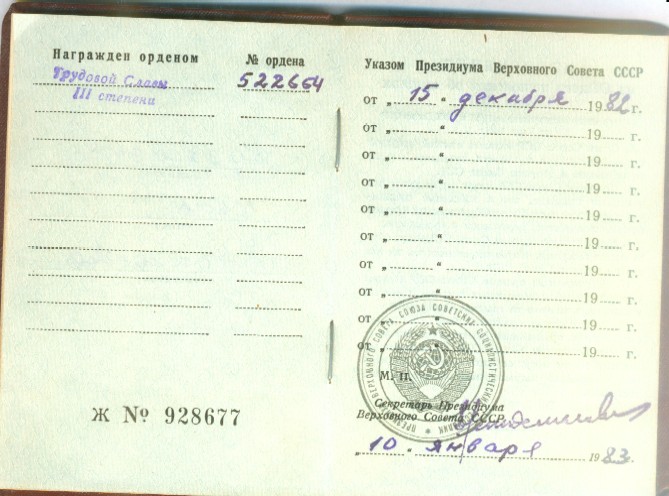 Награжден орденом
№ ордена
Трудовой Славы
III степени
522664
Ж № 928677
Указом Президиума Верховного Совета СССР
от „ 15 “ декабря 1982 г.
от „ “ 19 г.
от „ “ 19 г.
от „ “ 19 г.
от „ “ 19 г.
от „ “ 19 г.
от „ “ 19 г.
от „ “ 19 г.
от „ “ 19 г.
от „ “ 19 г.
М. П.
Секретарь Президиума
Верховного Совета СССР
„ 10 “ января 1983 г.